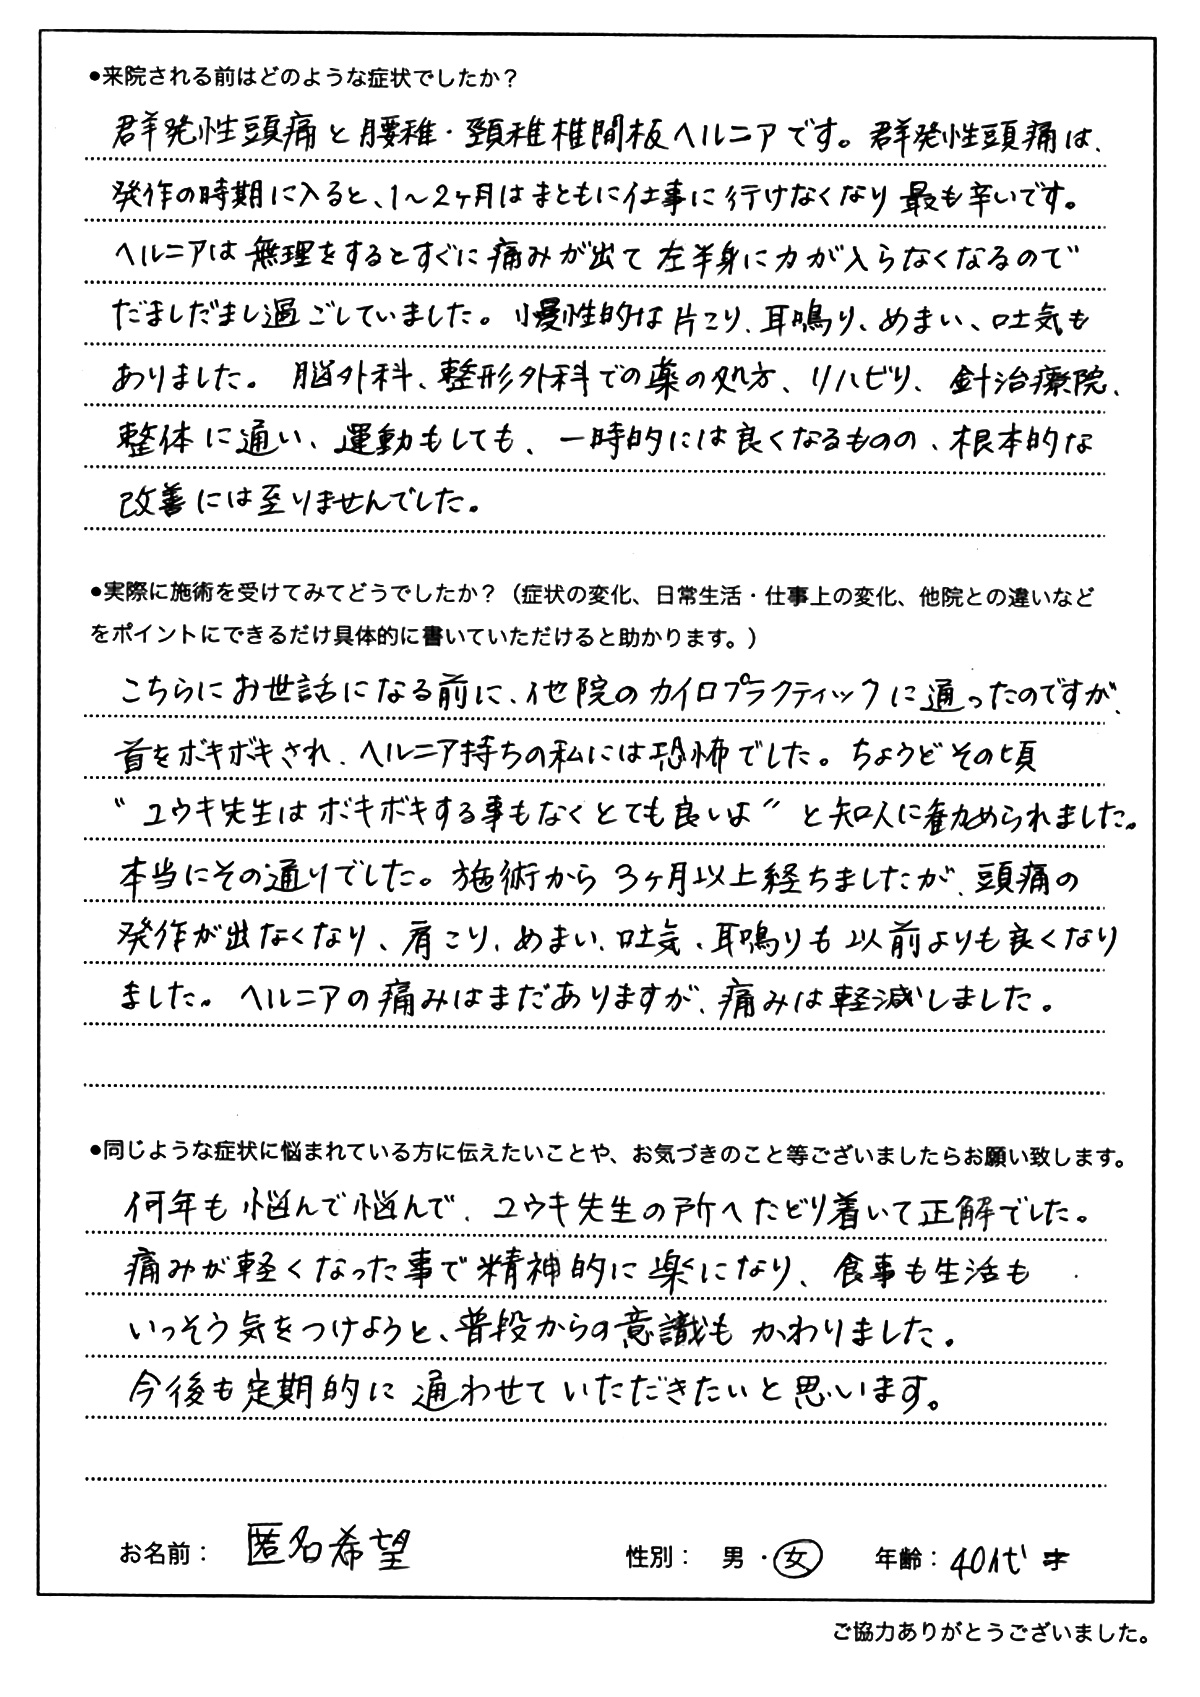 ●来院される前はどのような症状でしたか？
群発性頭痛と腰稚・頚稚椎間板ヘルニアです。群発性頭痛は、
発作の時期に入ると、1～2ヶ月はまともに仕事に行けなくなり最も辛いです。
ヘルニアは無理をするとすぐに痛みが出て左半身に力が入らなくなるので
だましだまし過ごしていました。慢性的は片こり、耳鳴り、めまい、吐気も
ありました。脳外科、整形外科での薬の処方、リハビリ、針治療院、
整体に通い、運動もしても、一時的には良くなるものの、根本的な
改善には至りませんでした。
●実際に施術を受けてみてどうでしたか？（症状の変化、日常生活・仕事上の変化、他院との違いなど
をポイントにできるだけ具体的に書いていただけると助かります。）
こちらにお世話になる前に、他院のカイロプラクティックに通ったのですが、
首をボキボキされ、ヘルニア持ちの私には恐怖でした。ちょうどその頃
〝ユウキ先生はボキボキする事もなくとても良いよ〟と知人に薦められました。
本当にその通りでした。施術から3ヶ月以上経ちましたが、頭痛の
発作が出なくなり、肩こり、めまい、吐気、耳鳴りも以前よりも良くなり
ました。ヘルニアの痛みはまだありますが、痛みは軽減しました。
●同じような症状に悩まれている方に伝えたいことや、お気づきのこと等ございましたらお願い致します。
何年も悩んで悩んで、ユウキ先生の所へたどり着いて正解でした。
痛みが軽くなった事で精神的に楽になり、食事も生活も
いっそう気をつけようと、普段からの意識もかわりました。
今後も定期的に通わせていただきたいと思います。
お名前： 匿名希望 性別： 男・女 年齢：40代 才
ご協力ありがとうございました。